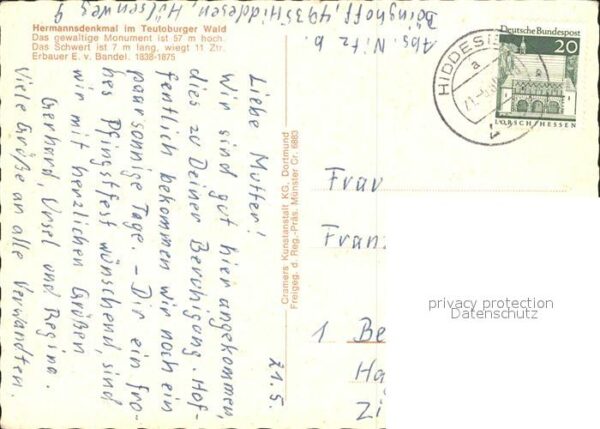 Hermannsdenkmal im Teutoburger Wald
Das gewaltige Monument ist 57 m hoch.
Das Schwert ist 7 m lang, wiegt 11 Ztr.
Erbauer E. v. Bandel. 1838-1875
Abs. Nitz b.
4935 Hiddesen, Hülsenweg 9
21.5.
Liebe Mutter!
Wir sind gut hier angekommen,
dies zu Deiner Beruhigung. Hof-
fentlich bekommen wir noch ein
paar sonnige Tage. – Dir ein fro-
hes Pfingstfest wünschend, sind
wir mit herzlichen Grüßen
Gerhard, Ursel und Regina.
Viele Grüße an alle Verwandten.
Cramers Kunstanstalt KG, Dortmund
Freigeg. d. Reg.-Präs. Münster Cr. 6883
Deutsche Bundespost
20
LORSCH/HESSEN
HIDDESE
a
Frau
Franz
1 Be
Ha
Zi
privacy protection
Datenschutz